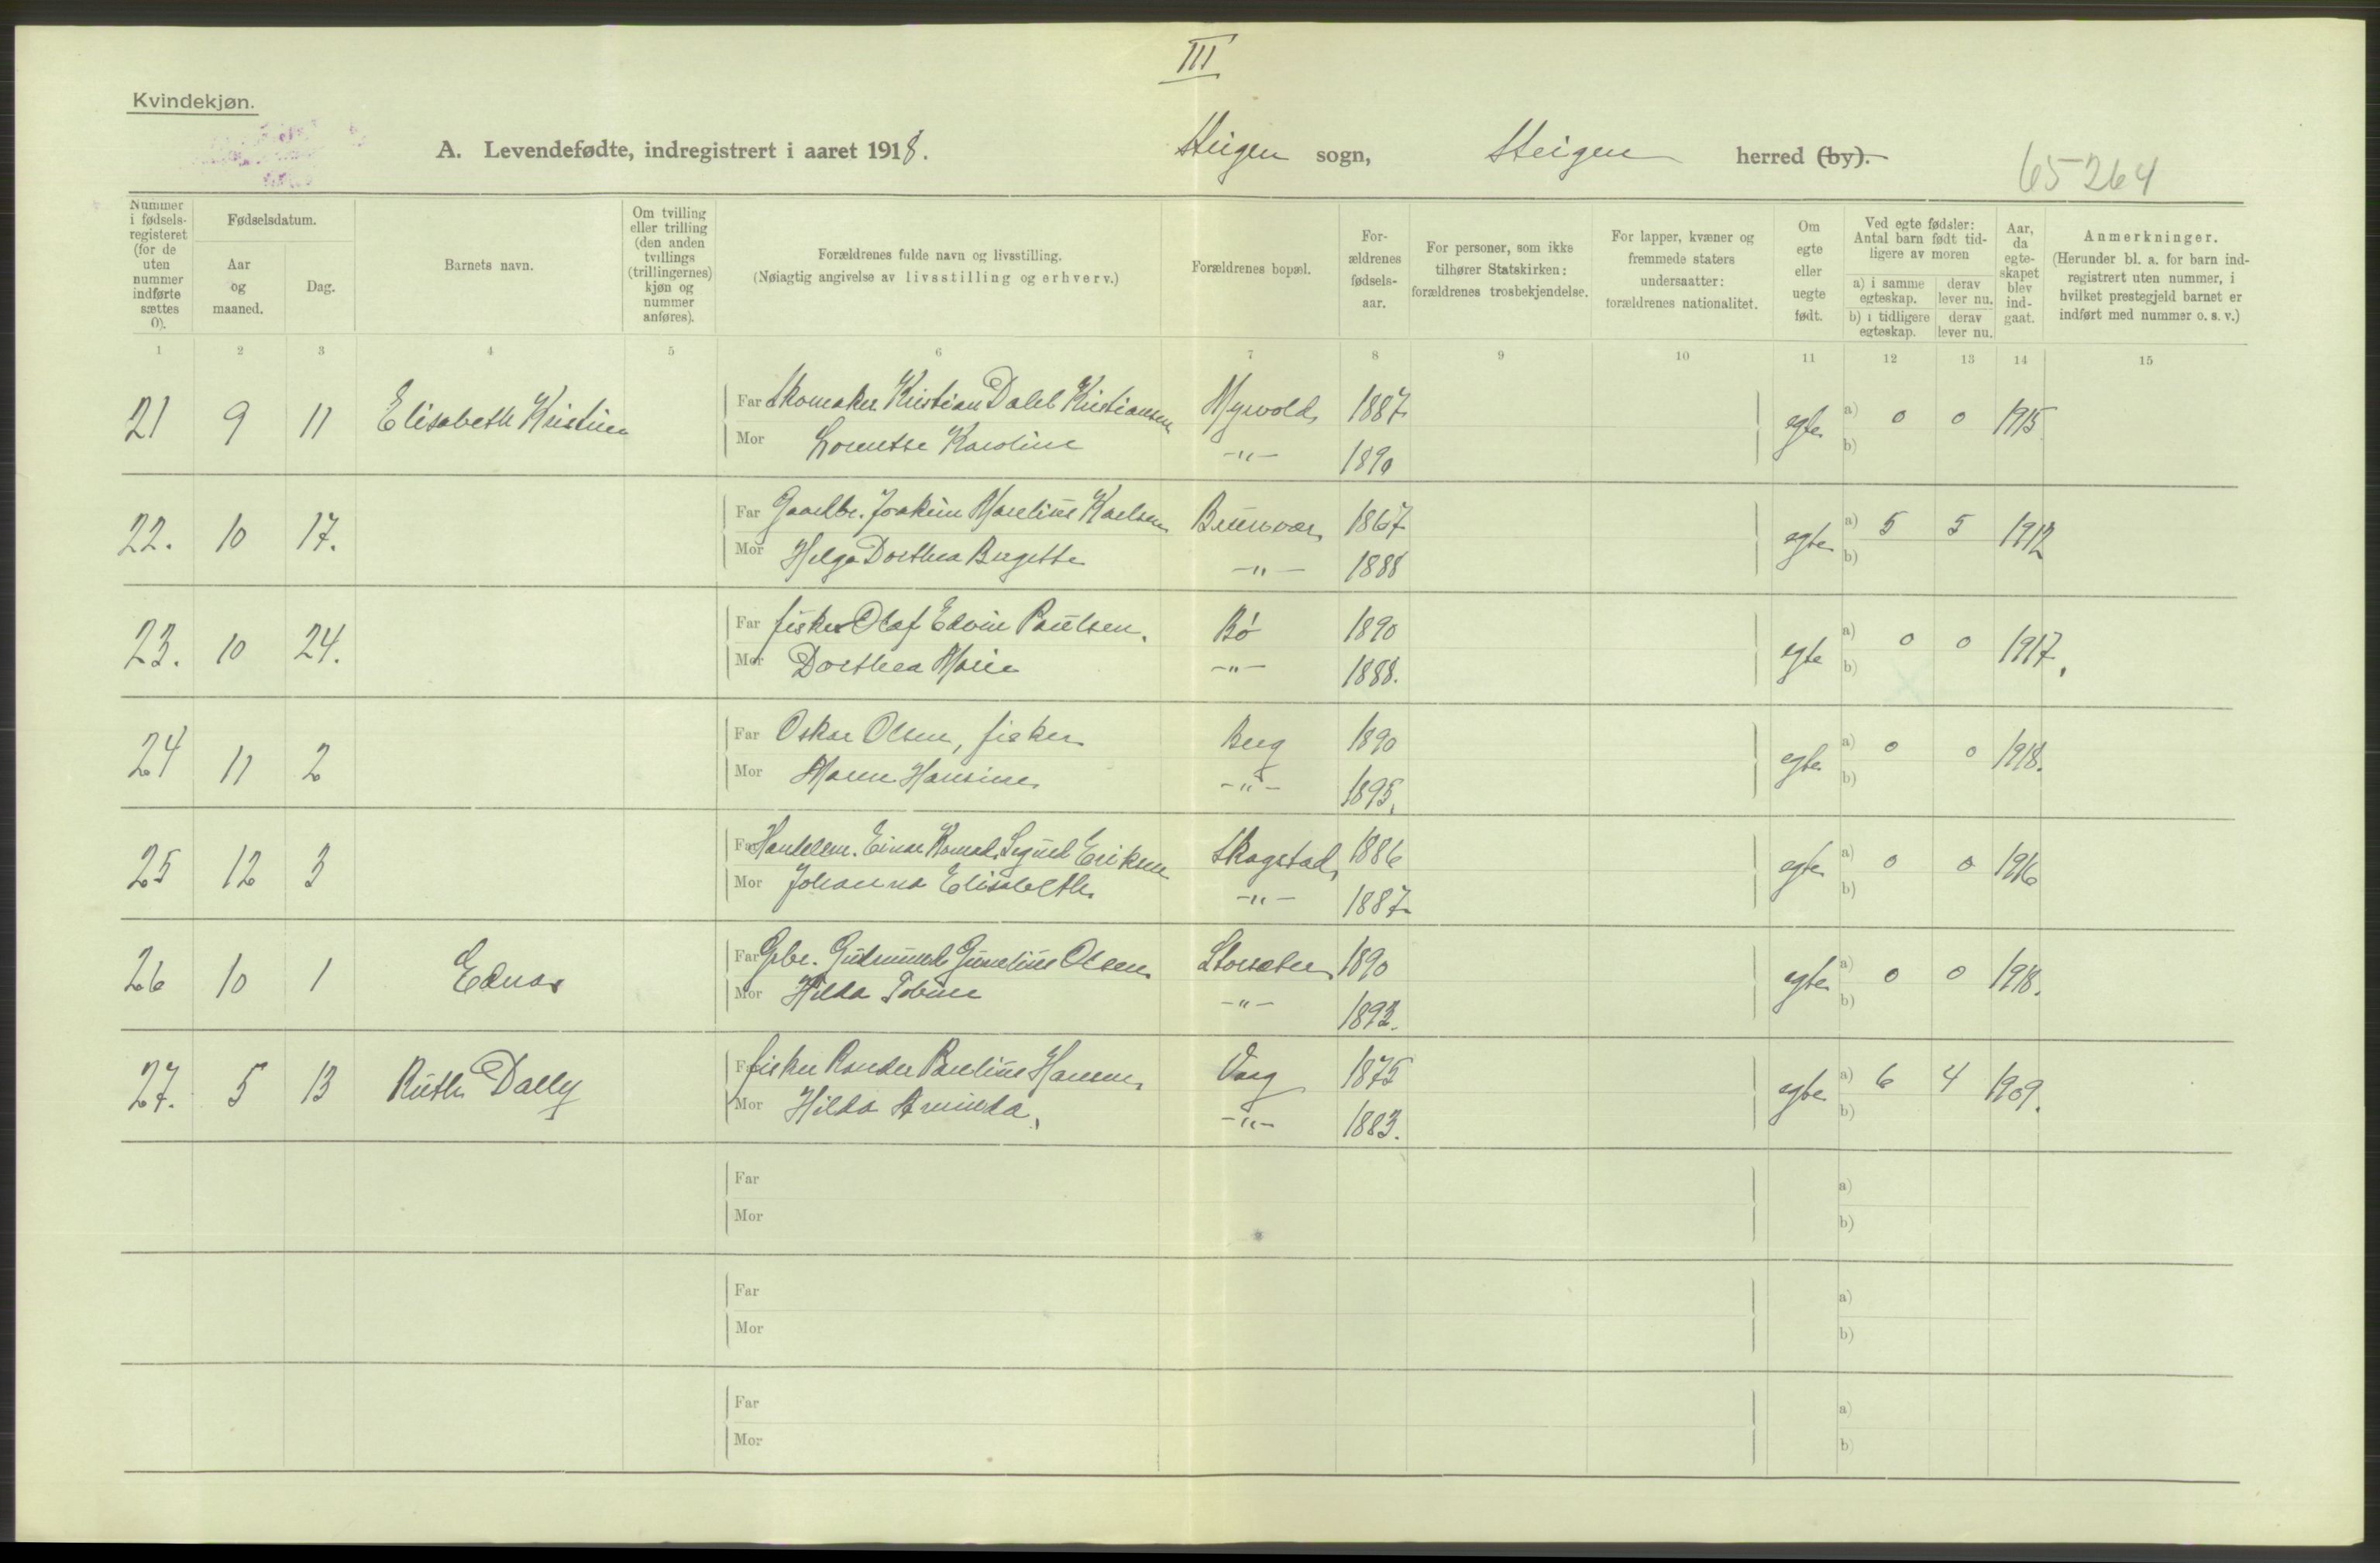 III
Kvindekjøn.
A. Levendefødte, indregistrert i aaret 1918. Steigen sogn, Steigen herred (by).
65264
Nummer i fødselsregisteret (for de uten nummer indførte sættes 0).
Fødselsdatum.
Aar og maaned.
Dag.
Barnets navn.
Om tvilling eller trilling (den anden tvillings (trillingernes) kjøn og nummer anføres).
Forældrenes fulde navn og livsstilling.
(Nøiagtig angivelse av livsstilling og erhverv.)
Forældrenes bopæl.
Forældrenes fødselsaar.
For personer, som ikke tilhører Statskirken: forældrenes trosbekjendelse.
For lapper, kvæner og fremmede staters undersaatter: forældrenes nationalitet.
Om egte eller uegte født.
Ved egte fødsler: Antal barn født tidligere av moren
a) i samme egteskap.
derav lever nu.
b) i tidligere egteskap.
derav lever nu.
Aar, da egteskapet blev indgaat.
Anmerkninger.
(Herunder bl. a. for barn indregistrert uten nummer, i hvilket prestegjeld barnet er indført med nummer o. s. v.)
1 2 3 4 5 6 7 8 9 10 11 12 13 14 15
21 9 11 Elisabeth Kristine Far Skomaker Kristian Dalel Kristiansen Myrvold 1887 egte a) 0 0 1915
Mor Lornetse Karoline -"- 1890 b)
22. 10 17. Far Gaardbr. Joakim Marelius Karlsen Brunsvær 1867 egte a) 5 5 1912
Mor Helga Dorthea Birgitte -"- 1888 b)
23. 10 24. Far fisker Olaf Edvin Paulsen. Bø 1890 egte a) 0 0 1917.
Mor Dorthea Marie -"- 1888. b)
24 11 2 Far Oskar Olsen, fisker Berg 1890 egte a) 0 0 1918.
Mor Maren Hansine -"- 1895. b)
25 12 3 Far Handelsm. Einar Konrad Sigurd Eriksen Skagstad 1886 egte a) 0 0 1916
Mor Johanna Elisabeth. -"- 1887 b)
26 10 1 Edna Far Gbr. Gudmund Gunelius Olsen Storsæter 1890 egte a) 0 0 1918.
Mor Hilda Tobine -"- 1892. b)
27. 5 13 Ruth Dally Far fisker Parelius Hansen Vaag 1875 egte a) 6 4 1909.
Mor Hilda Arminda. -"- 1883. b)
Far a)
Mor b)
Far a)
Mor b)
Far a)
Mor b)